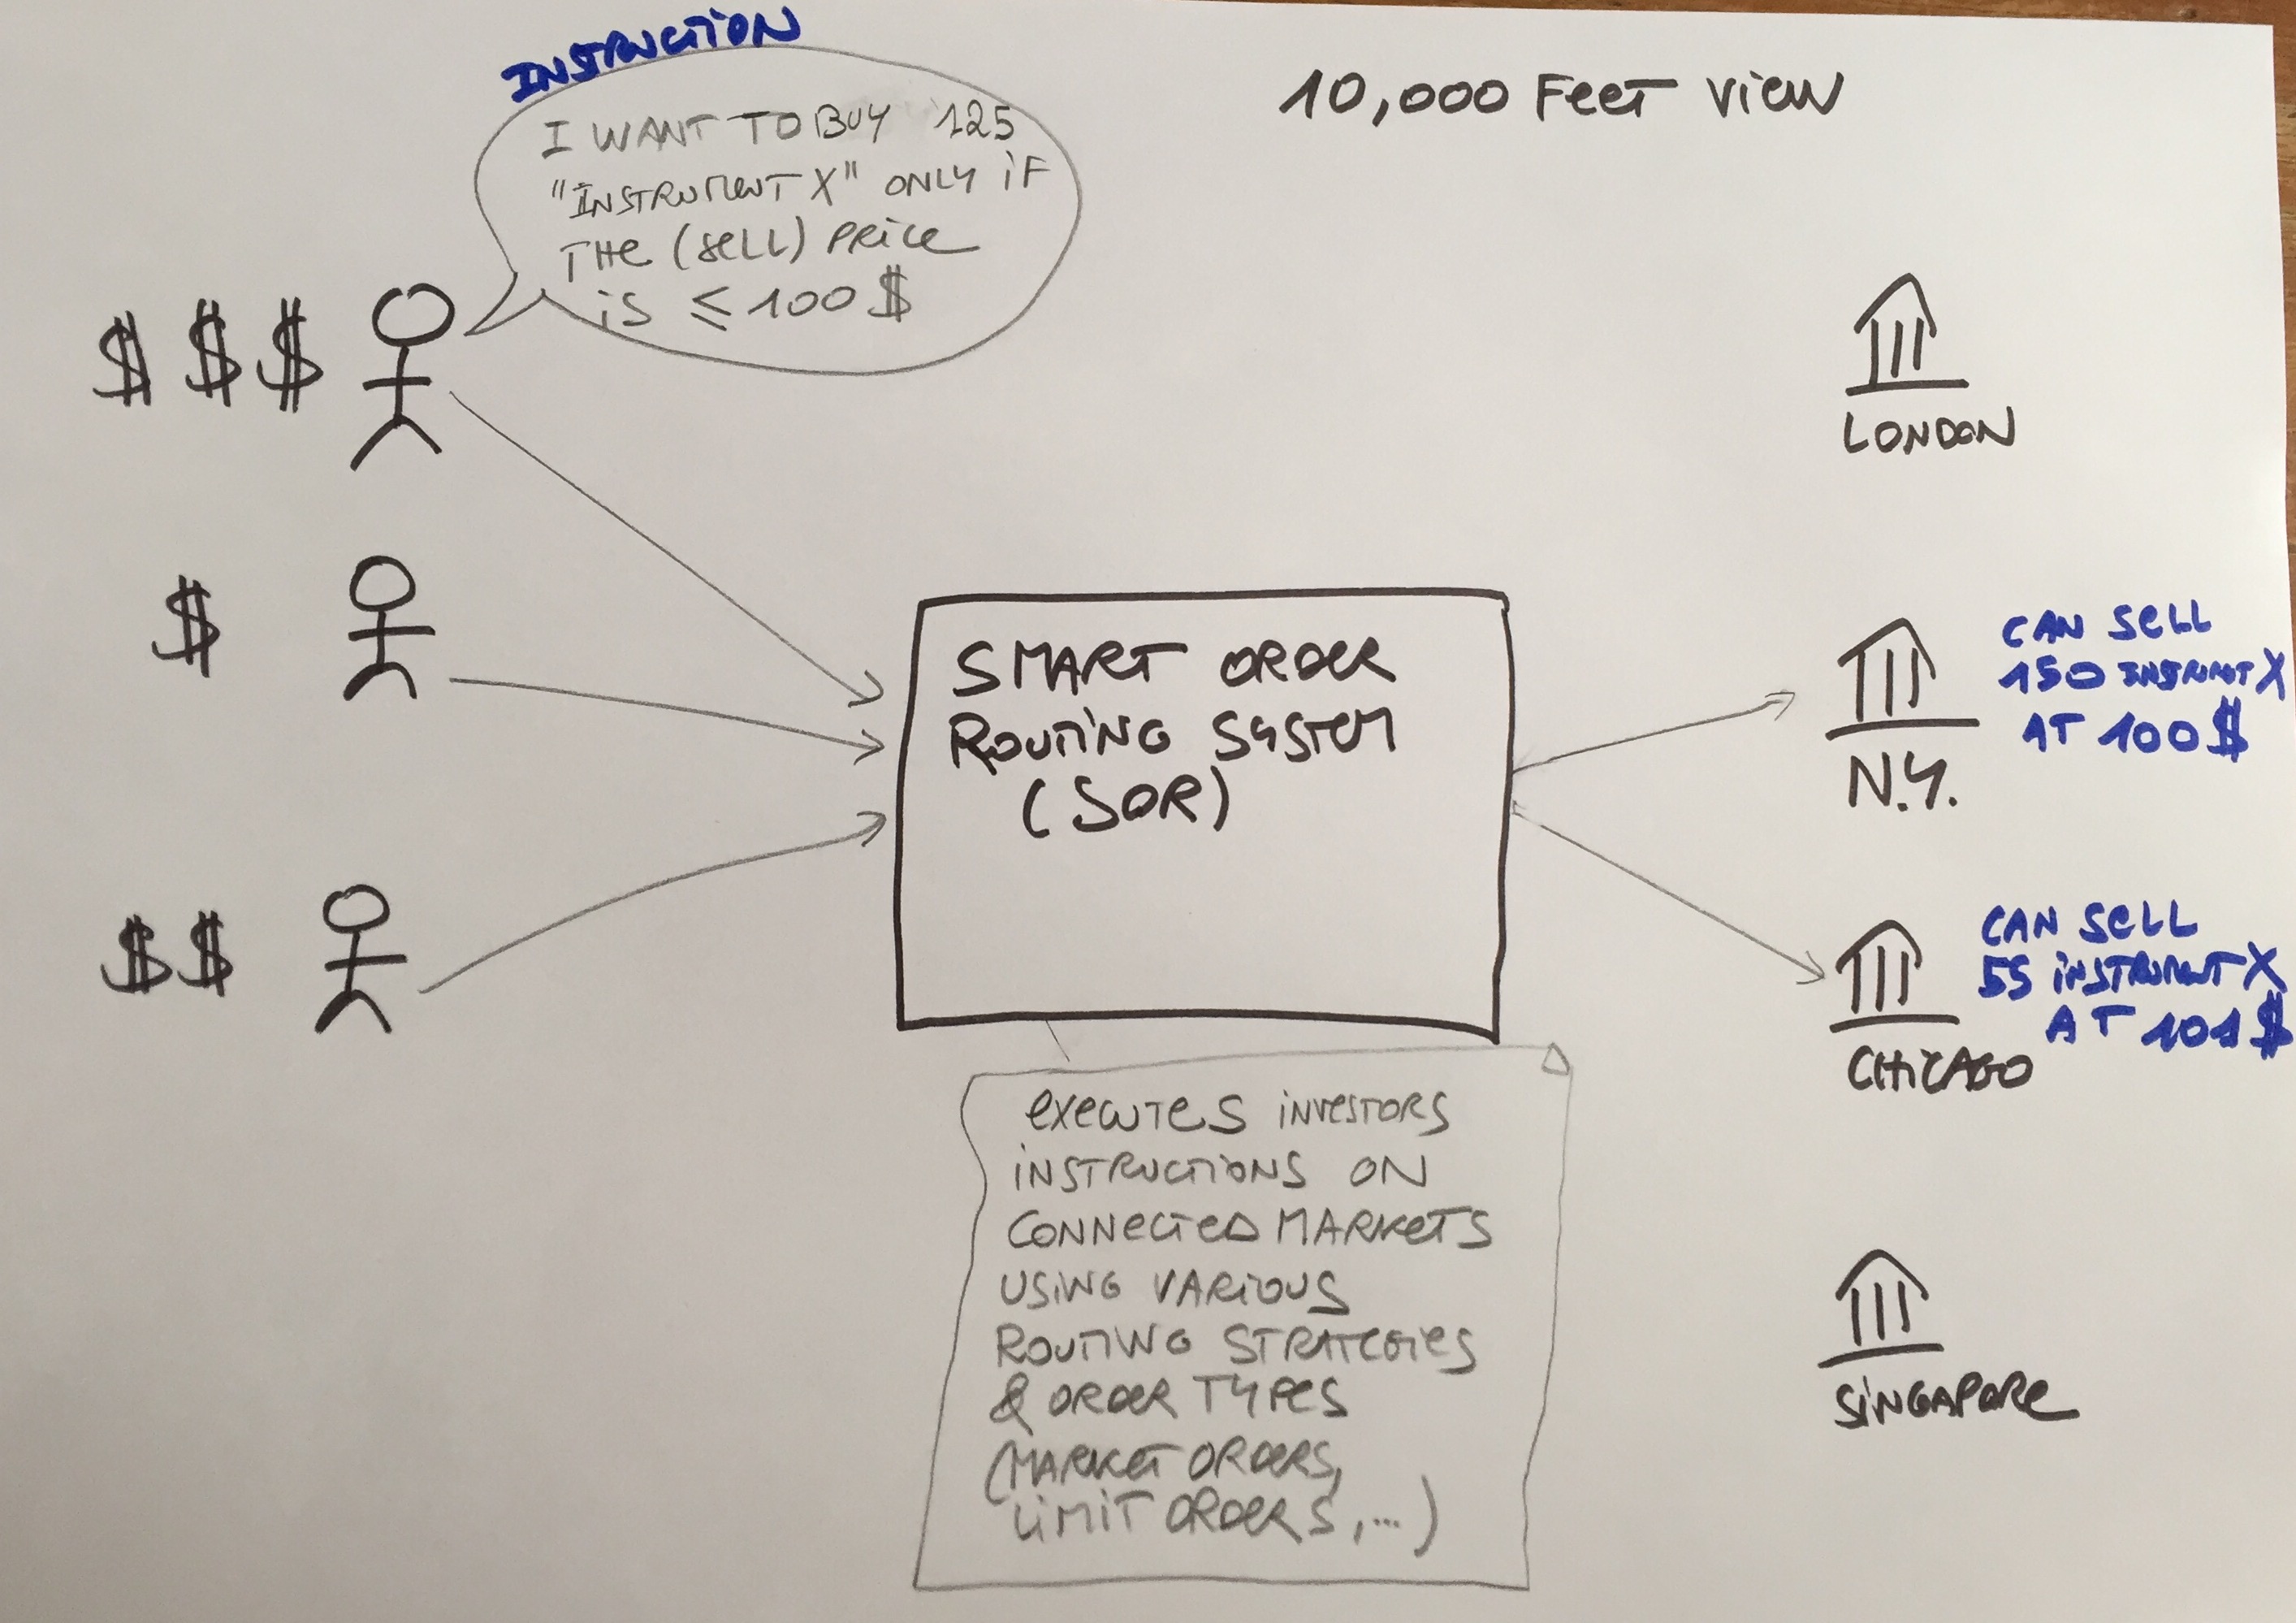 INSTRUCTION
10,000 FEET VIEW
I WANT TO BUY 125
"INSTRUMENT X" ONLY IF
THE (SELL) PRICE
IS ≤ 100 $
$ $ $
$
$ $
SMART ORDER
ROUTING SYSTEM
(SOR)
EXECUTES INVESTORS
INSTRUCTIONS ON
CONNECTED MARKETS
USING VARIOUS
ROUTING STRATEGIES
& ORDER TYPES
(MARKET ORDERS,
LIMIT ORDERS, ...)
LONDON
CAN SELL
150 INSTRUMENT X
AT 100 $
N.Y.
CAN SELL
55 INSTRUMENT X
AT 101 $
CHICAGO
SINGAPORE